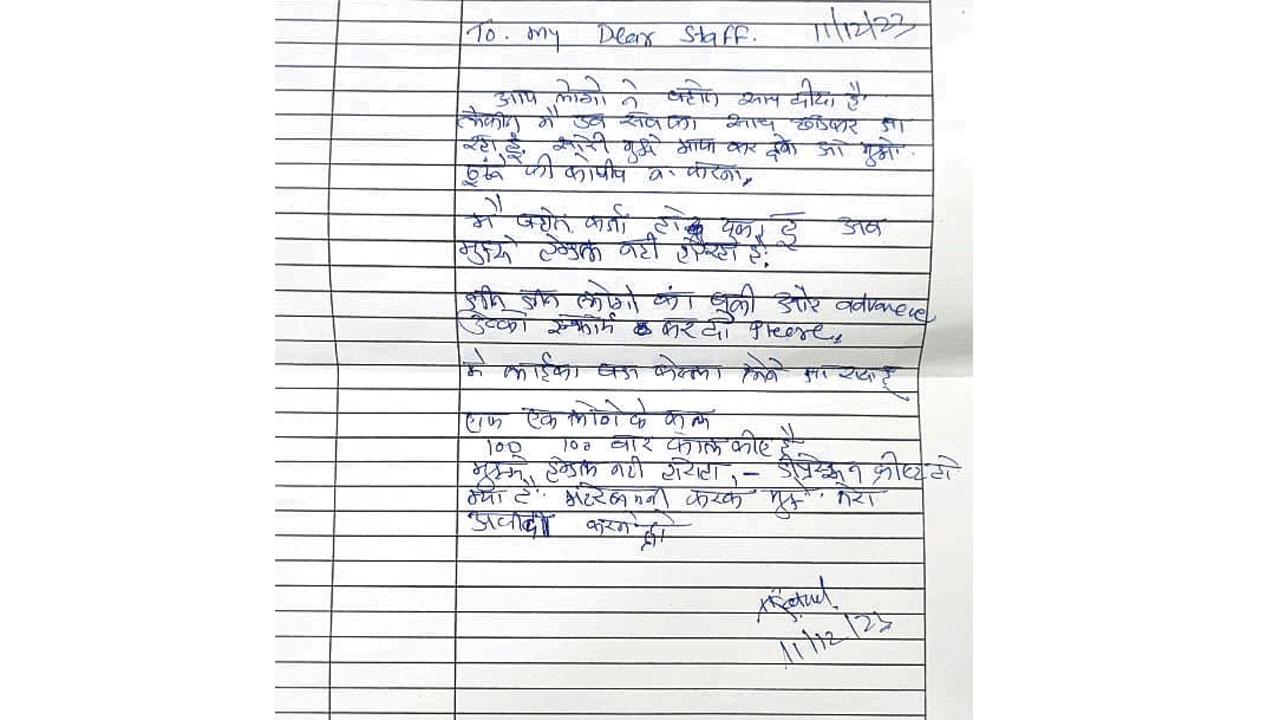 To. my Dear Staff. 11/12/23
आप लोगो ने बहोत साथ दीया है
लेकीन मै इन सबका साथ छोडकर जा
रहा हूँ. सोरी मुझे माफ कर देना ओ मुझे
ढुंढने की कोशीष न करना,
मै बहोत कर्जा हो चुका हूँ अब
मुझसे हेन्डल नही हो रहा है.
जीन जीन लोगो का बुकी और advance
उनको कर दो Please,
मे लाईफका बडा फेसला लेने जा रहा हूँ
एक एक लोगो के काल
100 100 बार काल कीए है
मुझसे हेन्डल नही होता, - डीप्रेशन हो
गया है. मेहरबानी करके मुझे मेरा
करने दो
11/12/23